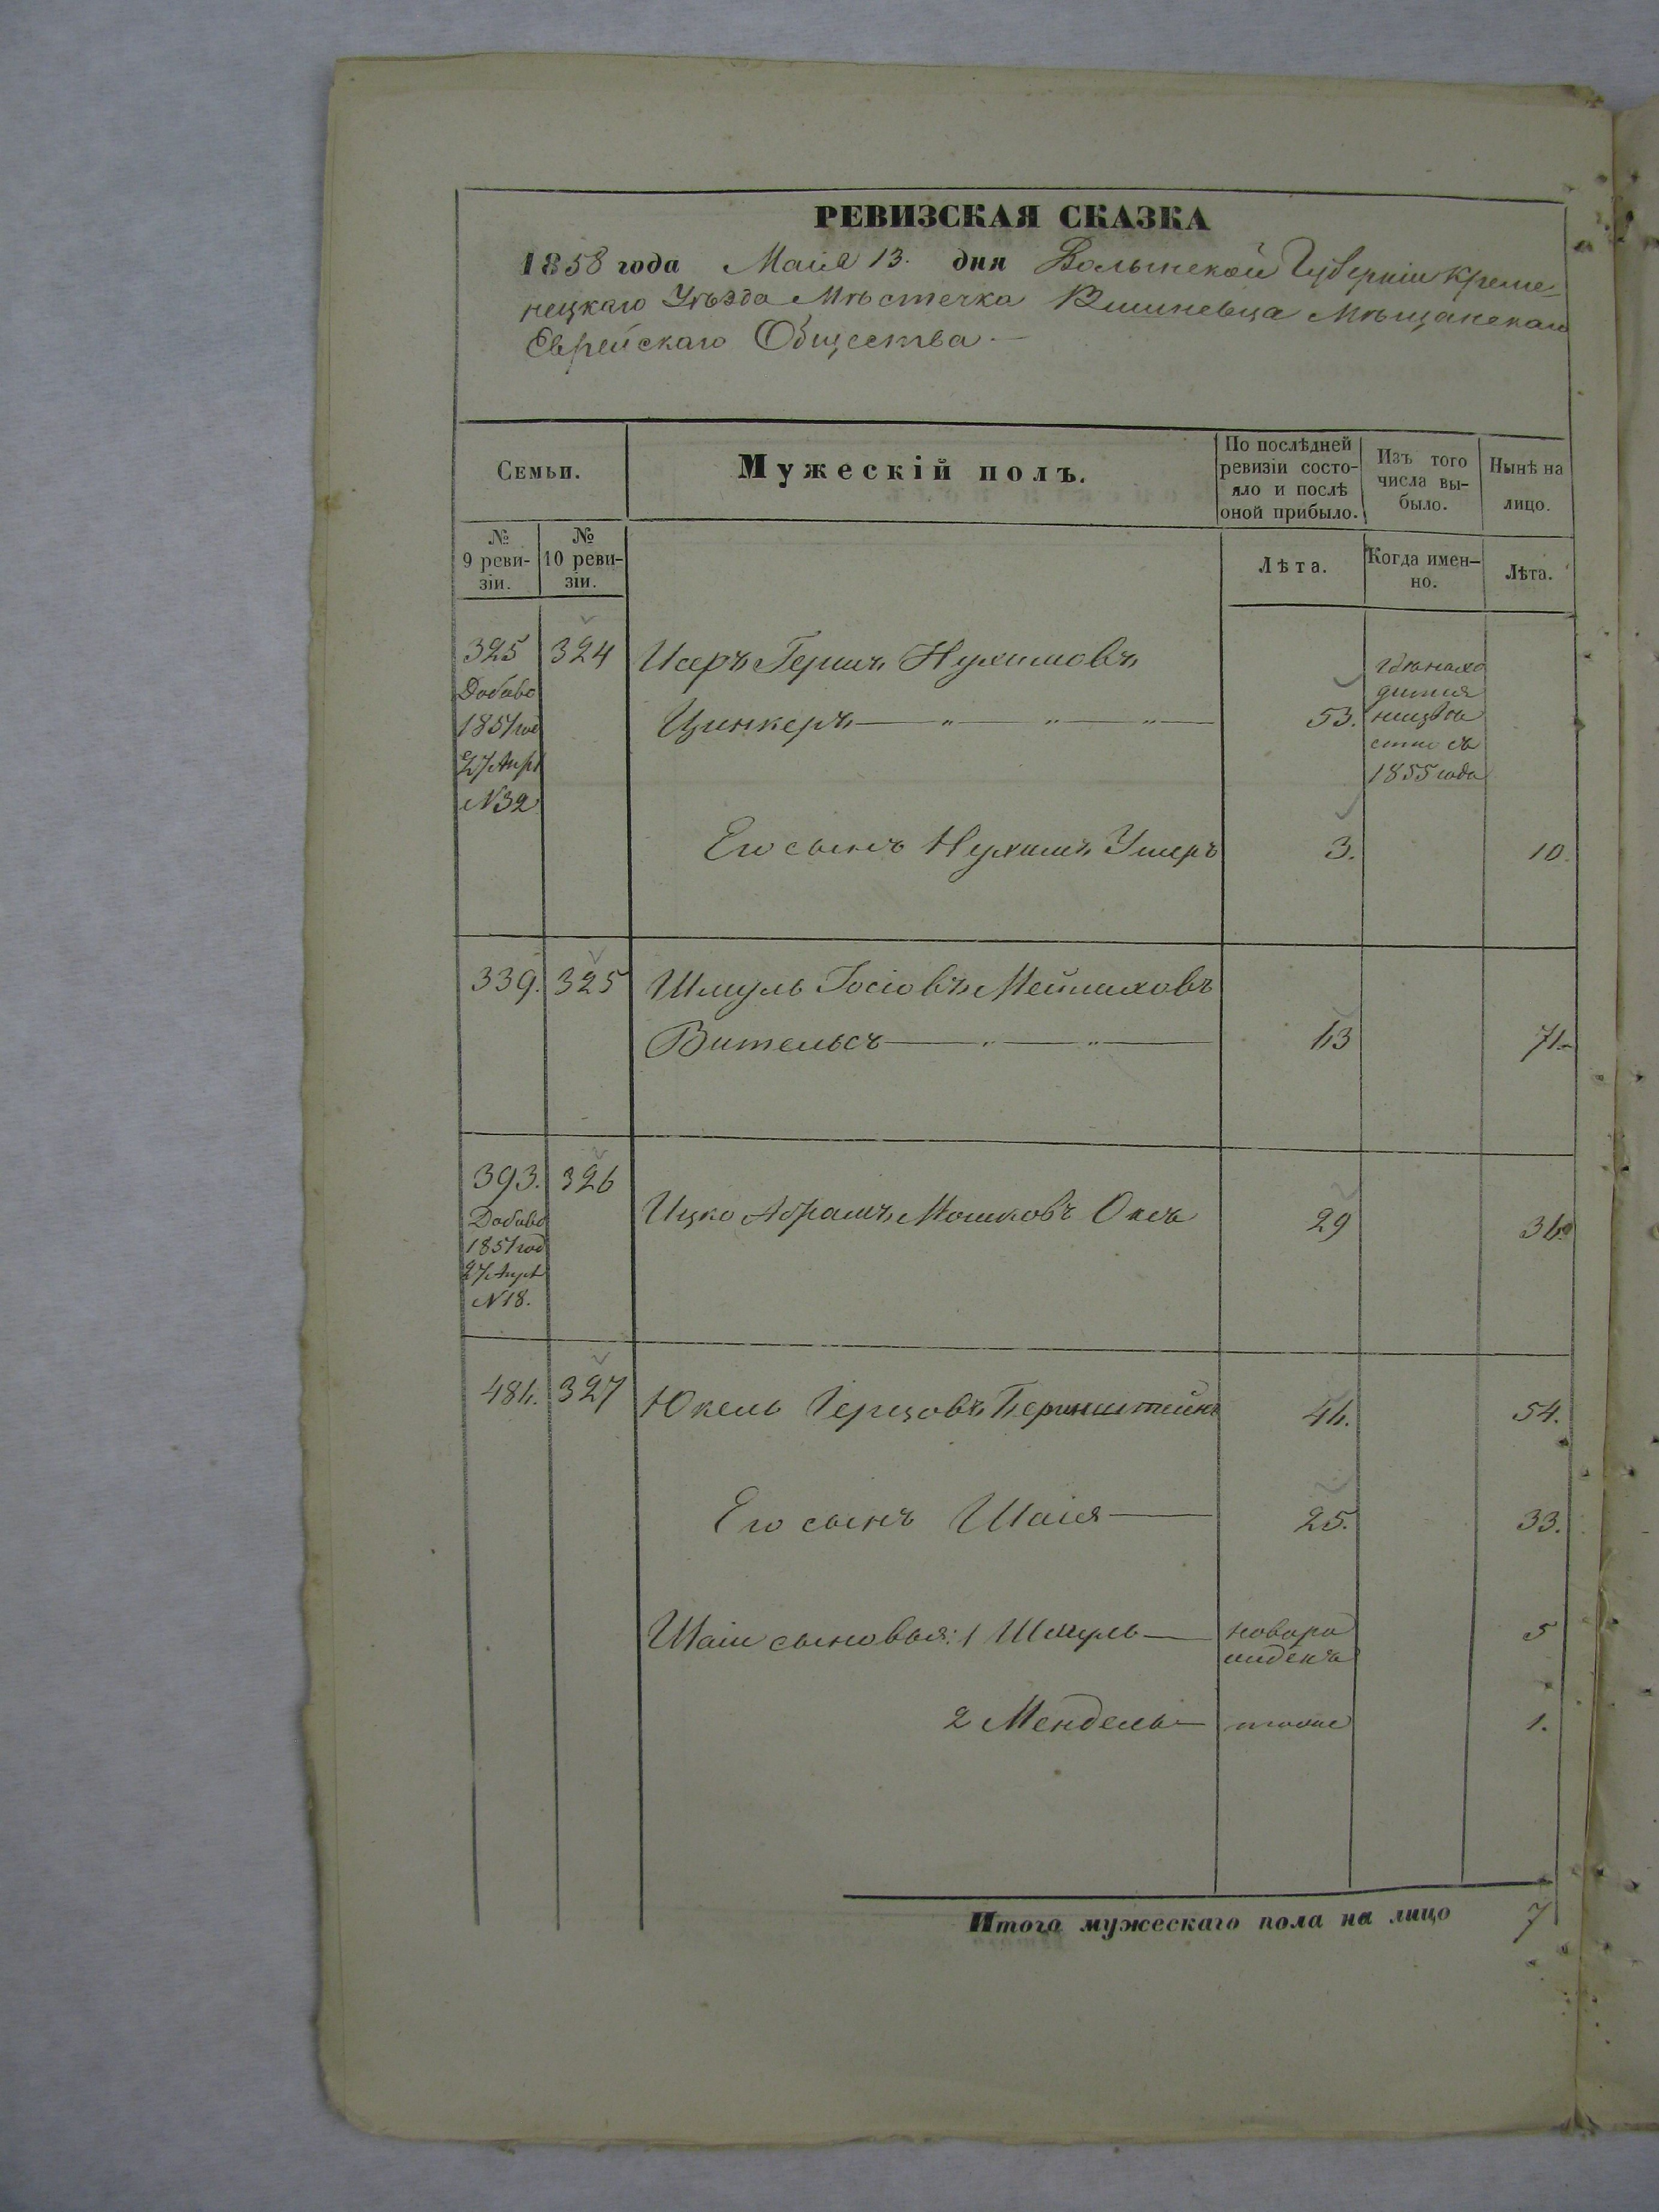 РЕВИЗСКАЯ СКАЗКА
1858 года Маия 13. дня Волынской Губерніи Креме-
нецкаго Уѣзда Мѣстечка Вишневца Мѣщанскаго
Еврейскаго Общества
Семьи.
Мужескій полъ.
По послѣдней
ревизіи состо-
яло и послѣ
оной прибыло.
Изъ того
числа вы-
было.
Нынѣ на
лицо.
№
9 реви-
зіи.
№
10 реви-
зіи.
Лѣта.
Когда имен-
но.
Лѣта.
325 324 Исеръ Гершъ Нухимовъ
Цинкеръ 53.
Добаво
1851 год
27 Апр
N32
гдѣ нахо
дится
неизвѣ
стно съ
1855 года
Его сынъ Нухимъ Ушеръ 3. 10.
339. 325 Шмуль Іосіовъ Мейлаховъ
Вительсъ 63 71
393. 326
Добаво
1851 год
27 Апр
N18.
Ицко Абрамъ Мошковъ Оксъ 29 36
484. 327 Юкель Герцовъ Беринштейнъ 46. 54.
Его сынъ Шаія 25. 33.
Шаіи сыновья: 1 Шмуль новоро
жденъ 5
2 Мендель тоже 1.
Итого мужескаго пола на лицо 7